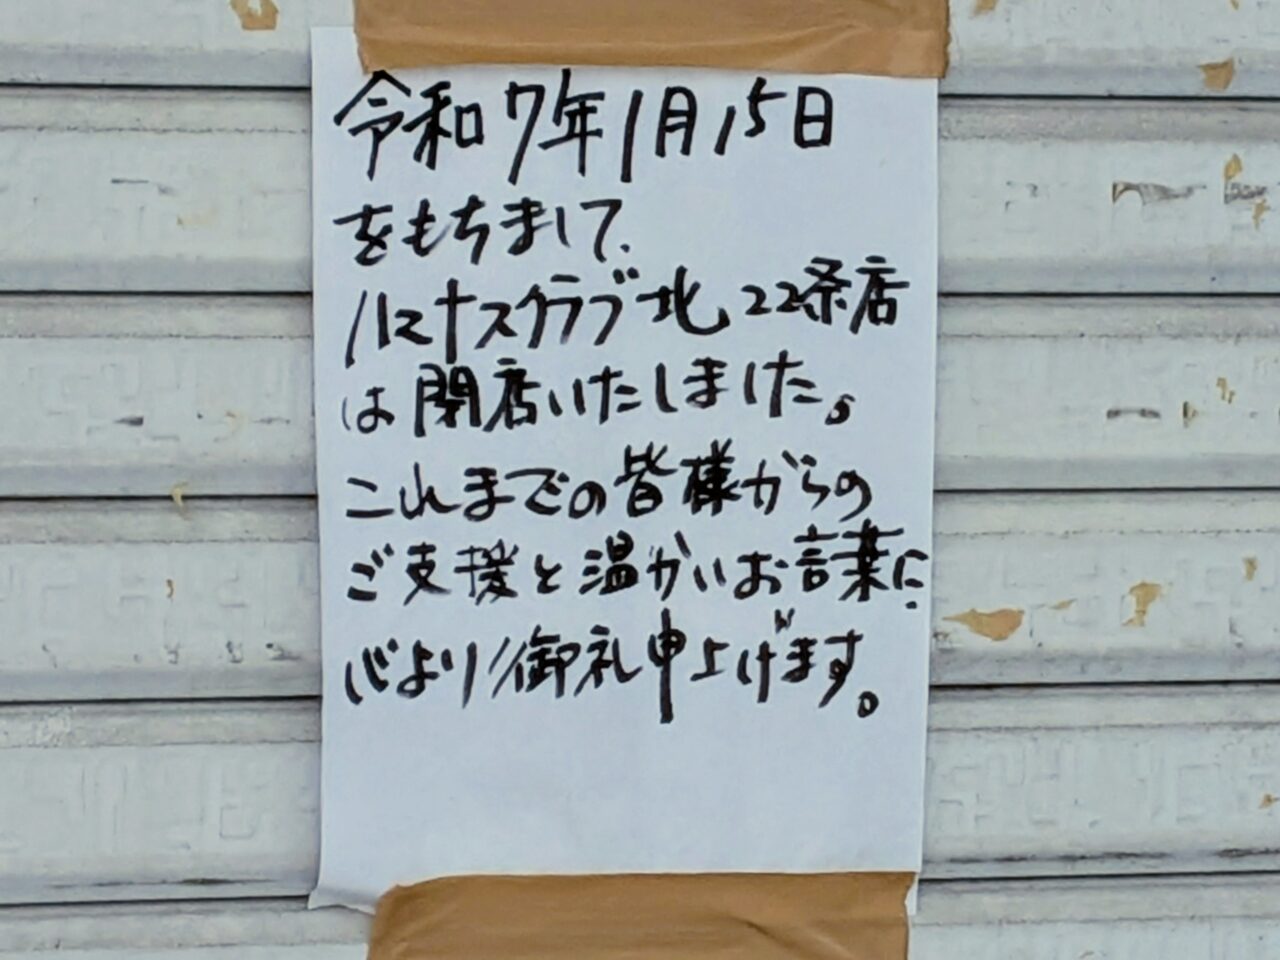 令和7年1月15日
をもちまして、
ハミナスクラブ北22条店
は閉店いたしました。
これまでの皆様からの
ご支援と温かいお言葉に
心より御礼申上げます。